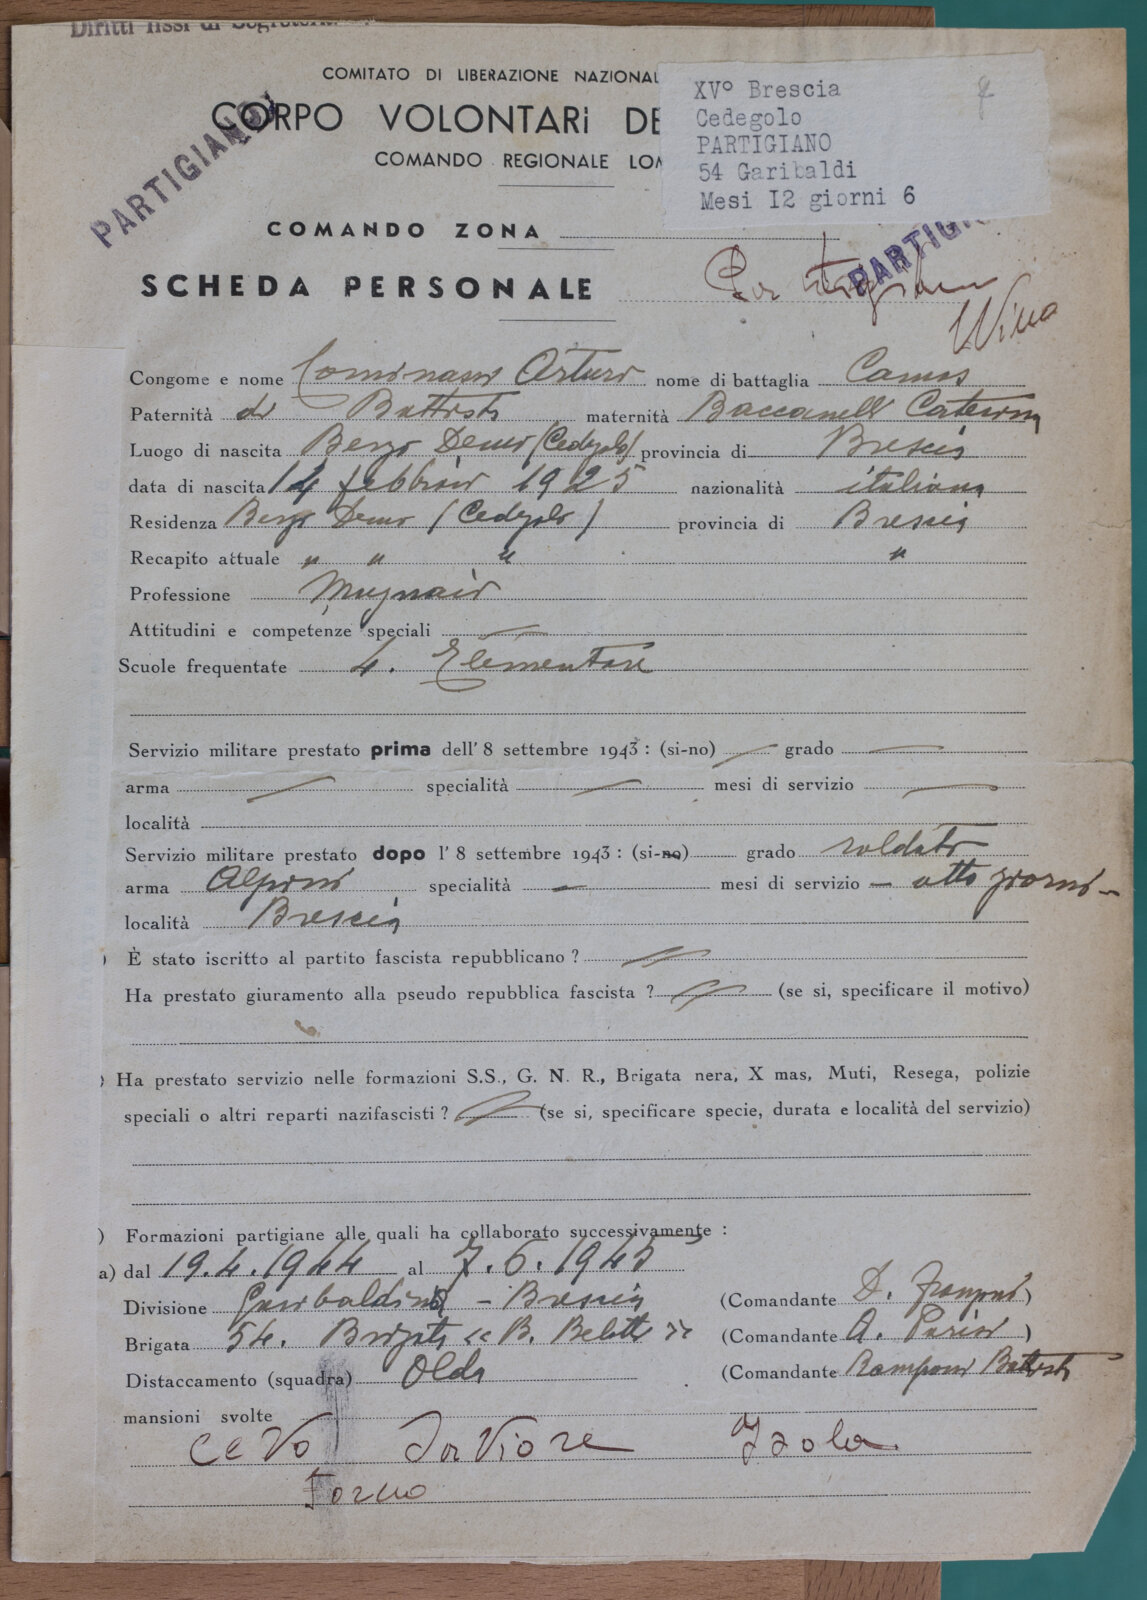 Diritti fissi di Segreteria
COMITATO DI LIBERAZIONE NAZIONAL
CORPO VOLONTARi DE
COMANDO REGIONALE LOM
XV° Brescia
Cedegolo
PARTIGIANO
54 Garibaldi
Mesi I2 giorni 6
PARTIGIANO
PARTIGI
COMANDO ZONA
SCHEDA PERSONALE Partigiano
Congome e nome Cominassi Arturo nome di battaglia Camos
Paternità di Battista maternità Baccanelli Caterina
Luogo di nascita Berzo Demo (Cedegolo) provincia di Brescia
data di nascita 14 febbraio 1925 nazionalità italiana
Residenza Berzo Demo (Cedegolo) provincia di Brescia
Recapito attuale " " " "
Professione Mugnaio
Attitudini e competenze speciali —
Scuole frequentate 4. Elementare
Servizio militare prestato prima dell' 8 settembre 1943 : (si-no) — grado —
arma — specialità — mesi di servizio —
località
Servizio militare prestato dopo l' 8 settembre 1943 : (si-no) grado soldato
arma Alpini specialità — mesi di servizio — otto giorni —
località Brescia
) È stato iscritto al partito fascista repubblicano ? //
Ha prestato giuramento alla pseudo repubblica fascista ? // (se si, specificare il motivo)
) Ha prestato servizio nelle formazioni S.S., G. N. R., Brigata nera, X mas, Muti, Resega, polizie
speciali o altri reparti nazifascisti ? // (se si, specificare specie, durata e località del servizio)
) Formazioni partigiane alle quali ha collaborato successivamente :
a) dal 19.4.1944 al 7.6.1945
Divisione Garibaldina - Brescia (Comandante D. )
Brigata 54. Brigata "B. Belotti" (Comandante A. Parisi )
Distaccamento (squadra) Olda (Comandante Ramponi Battista
mansioni svolte
CeVo SaViore Isola
Forno